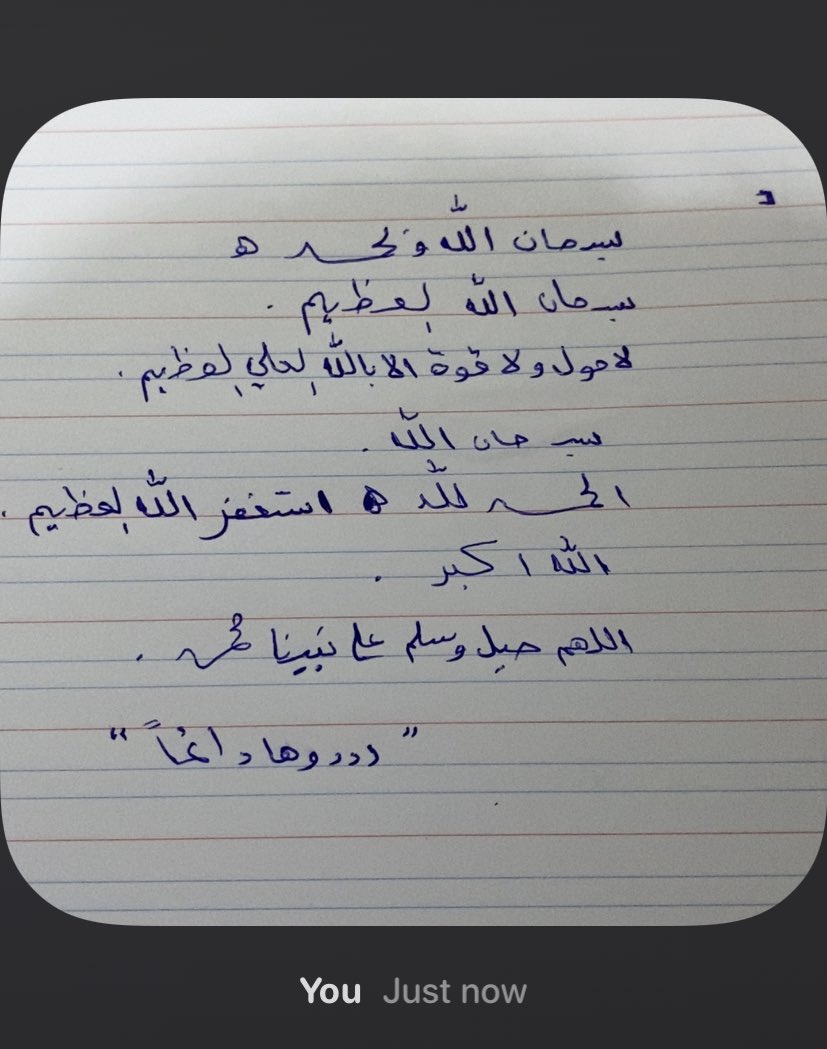 سبحان الله وبحمده
سبحان الله العظيم .
لا حول ولا قوة الا بالله العلي العظيم .
سبحان الله .
الحمد لله استغفر الله العظيم .
الله اكبر .
اللهم صل وسلم على نبينا محمد .
" رددوها دائماً "
You Just now